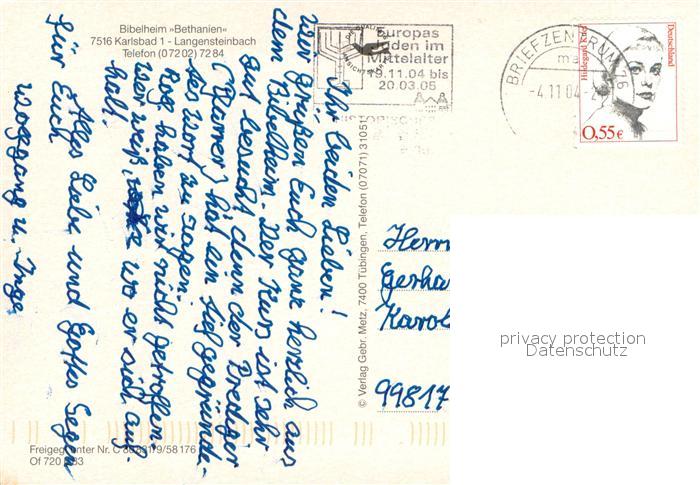 Bibelheim »Bethanien«
7516 Karlsbad 1 - Langensteinbach
Telefon (07202) 7284
Ihr beiden Lieben!
Wir grüßen Euch ganz herzlich aus
dem Bibelheim. Der Kurs ist sehr
gut besucht denn der Prediger
(Kramer) hat ein tiefgegründe-
tes Wort zu sagen.
haben wir nicht getroffen
wer weiß, wo er sich auf-
hält.
Alles Liebe und Gottes Segen
für Euch
Wolfgang u. Inge
© Verlag Gebr. Metz, 7400 Tübingen, Telefon (07071) 31051
Freigegeben unter Nr. C
Of 720
Europas
Juden im
Mittelalter
19.11.04 bis
20.03.05
BRIEFZENTRUM 76
-4.11.04-
Hildegard Knef
Deutschland
0,55€
Herrn
Gerha
Karol
99817
privacy protection
Datenschutz